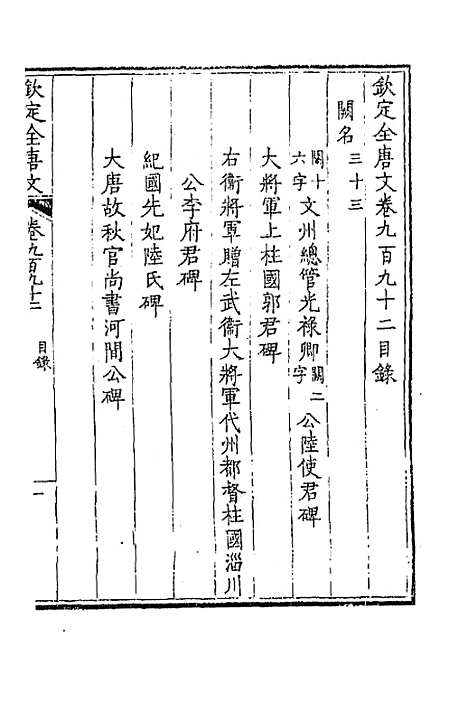 欽定全唐文卷九百九十二目錄
闕名三十三
闕十六字文州總管光祿卿闕二字公陸使君碑
大將軍上柱國郭君碑
右衞將軍贈左武衞大將軍代州都督柱國淄川
公李府君碑
紀國先妃陸氏碑
大唐故秋官尚書河間公碑
欽定全唐文 卷九百九十二 目錄 一